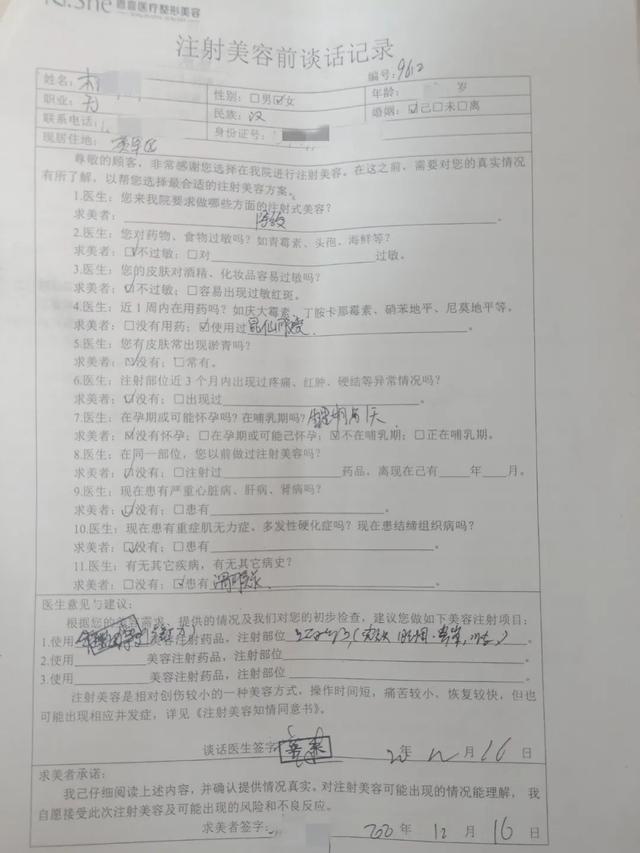 医疗整形美容
注射美容前谈话记录
编号:9612
姓名:
性别:□男☑女
年龄: 岁
职业:无
民族:汉
婚姻:☑已□未□离
联系电话:
身份证号:
现居住地:
尊敬的顾客，非常感谢您选择在我院进行注射美容。在这之前，需要对您的真实情况
有所了解，以帮您选择最合适的注射美容方案。
1.医生：您来我院要求做哪些方面的注射式美容？
求美者：除皱。
2.医生：您对药物、食物过敏吗？如青霉素、头孢、海鲜等？
求美者：☑不过敏；□对 过敏。
3.医生：您的皮肤对酒精、化妆品容易过敏吗？
求美者：☑不过敏；□容易出现过敏红斑。
4.医生：近1周内在用药吗？如庆大霉素、丁胺卡那霉素、硝苯地平、尼莫地平等。
求美者：□没有用药；☑使用过 。
5.医生：您有皮肤常出现淤青吗？
求美者：☑没有；□常有。
6.医生：注射部位近3个月内出现过疼痛、红肿、硬结等异常情况吗？
求美者：☑没有；□出现过 。
7.医生：在孕期或可能怀孕吗？在哪乳期吗？
求美者：☑没有怀孕；□在孕期或可能己怀孕；☑不在哺乳期；□正在哺乳期。
8.医生：在同一部位，您以前做过注射美容吗？
求美者：☑没有；□注射过 药品，离现在己有 年 月。
9.医生：现在患有严重心脏病、肝病、肾病吗？
求美者：☑没有；□患有 。
10.医生：现在患有重症肌无力症、多发性硬化症吗？现在患结缔组织病吗？
求美者：☑没有；□患有 。
11.医生：有无其它疾病，有无其它病史？
求美者：□没有；☑患有 。
医生意见与建议：
根据您的美容需求、提供的情况及我们对您的初步检查，建议您做如下美容注射项目：
1.使用 美容注射药品，注射部位
2.使用 美容注射药品，注射部位 。
3.使用 美容注射药品，注射部位 。
注射美容是相对创伤较小的一种美容方式，操作时间短，痛苦较小、恢复较快，但也
可能出现相应并发症，详见《注射美容知情同意书》。
谈话医生签字： 20年12月16日
求美者承诺：
我己仔细阅读上述内容，并确认提供情况真实。对注射美容可能出现的情况能理解，我
自愿接受此次注射美容及可能出现的风险和不良反应。
求美者签字： 年12月16日